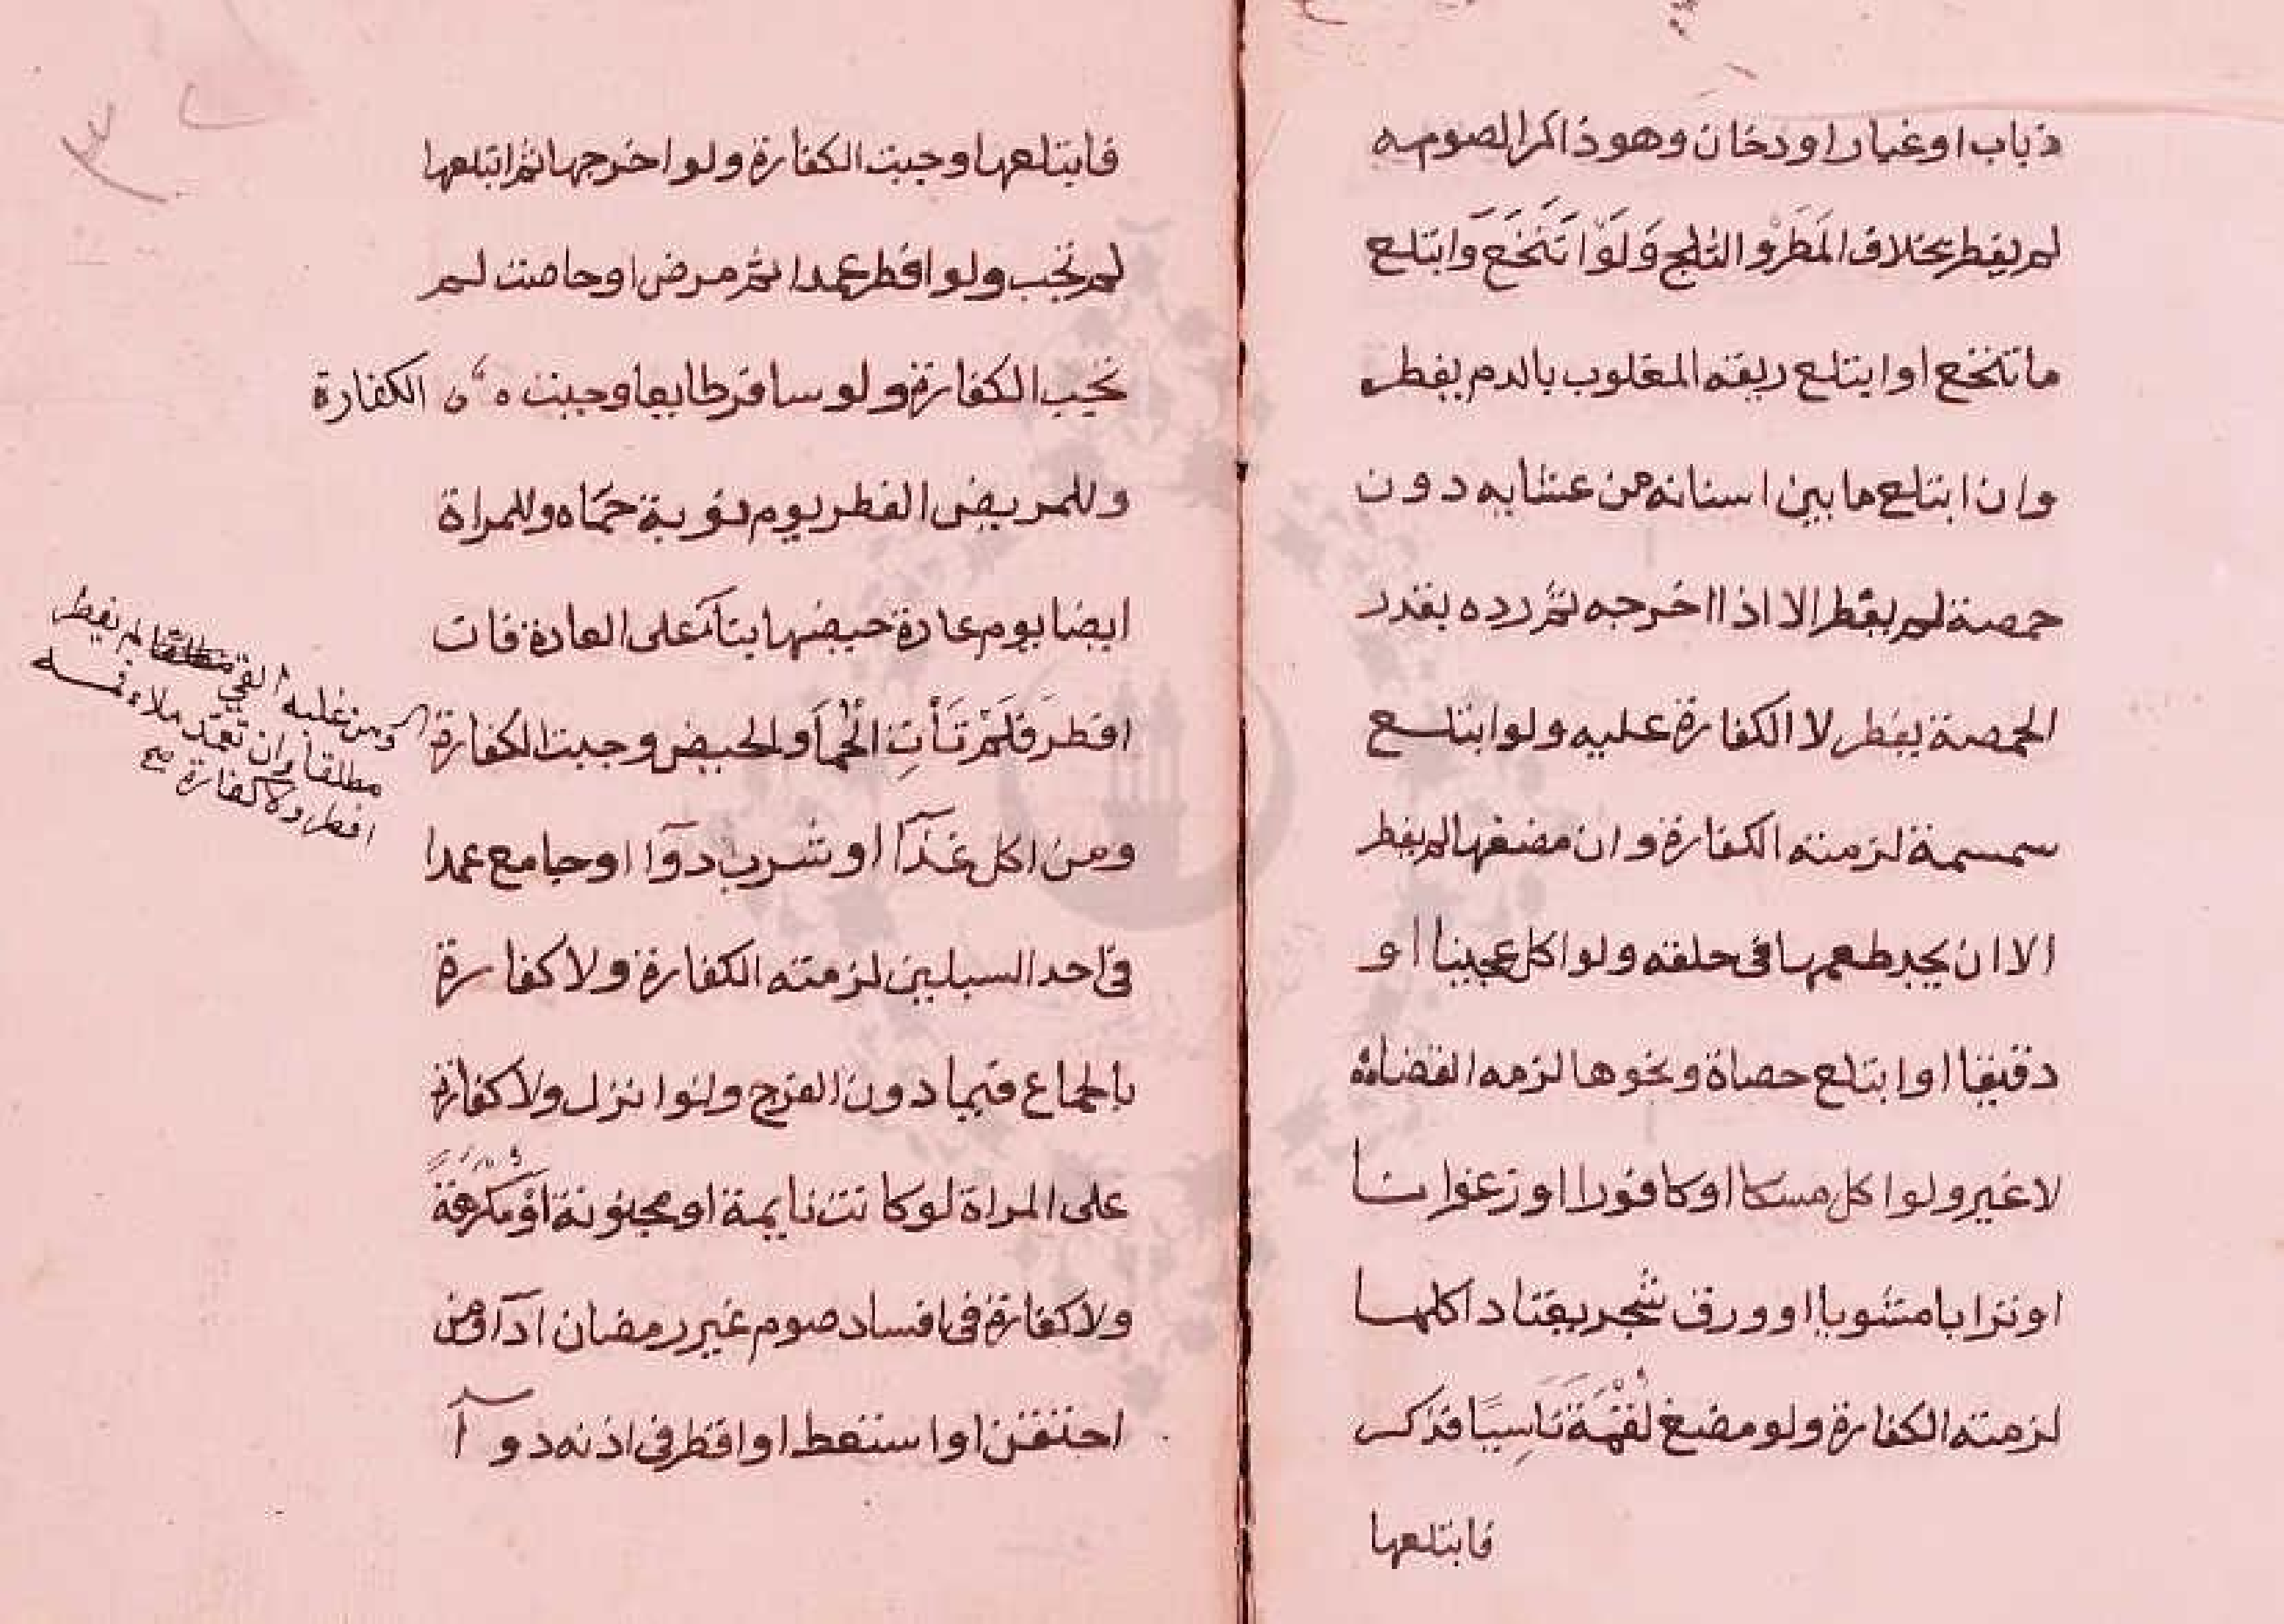 ذباب او غبار او دخان وهو ذاكر الصومه
لم يفطر بخلاف المَطَرْ و الثلج وَلَوْا تَنَخَعَ وَابتلع
ما تنخع او ابتلع ريقه المغلوب بالدم يفطر
وان ابتلع ما بين اسنانه من عشايه دون
حمصة لم يفطر الا اذا اخرجه ثم رده بقدر
الحمصة يفطر لا الكفارة عليه ولو ابتلع
سمسمة لزمته الكفارة وان مضغها لم يفطر
الا ان يجد طعمها فى حلقه ولو اكل عجينا او
دقيقا او ابتلع حصاة ونحوها لزمه القضاء
لا غير ولو اكل مسكا او كافورا او زعفرانا
او ترابا مشويا او ورق شجر يقتاد اكلها
لزمته الكفارة ولو مضغ لُقْمَةَ نَاسِيًا فذكر
فابتلعها
فابتلعها وجبت الكفارة ولو اخرجها ثم ابتلعها
لم تجب ولو افطر عمدا ثم مرض او حاضت لم
تجب الكفارة ولو سافر طايعا وجبت الكفارة
وللمريض الفطر يوم نوبة حمَاه وللمراة
ايضا يوم عادة حيضها بنآء على العادة فان
افطرَ فلَمْ تَأتِ الحُمَا والحيض وجبت الكفارة
ومن اكل غذآ او شرب دوآ او جامع عمدا
فى احد السبلين لزمته الكفارة ولا كفارة
بالجماع فيما دون الفرج ولو انزل ولا كفارة
على المراة لو كانت نايمة او مجنونة اوْ مُكْرَهَةً
ولا كفارة فى افساد صوم غير رمضان ادآ ومن
احتقن او استعط او اقطر فى اذنه دوآ
ومن غلبه القي مطلقا لم يفطر
مطلقا وان تعمد ملاء فمه
افطر ولا كفارة صح